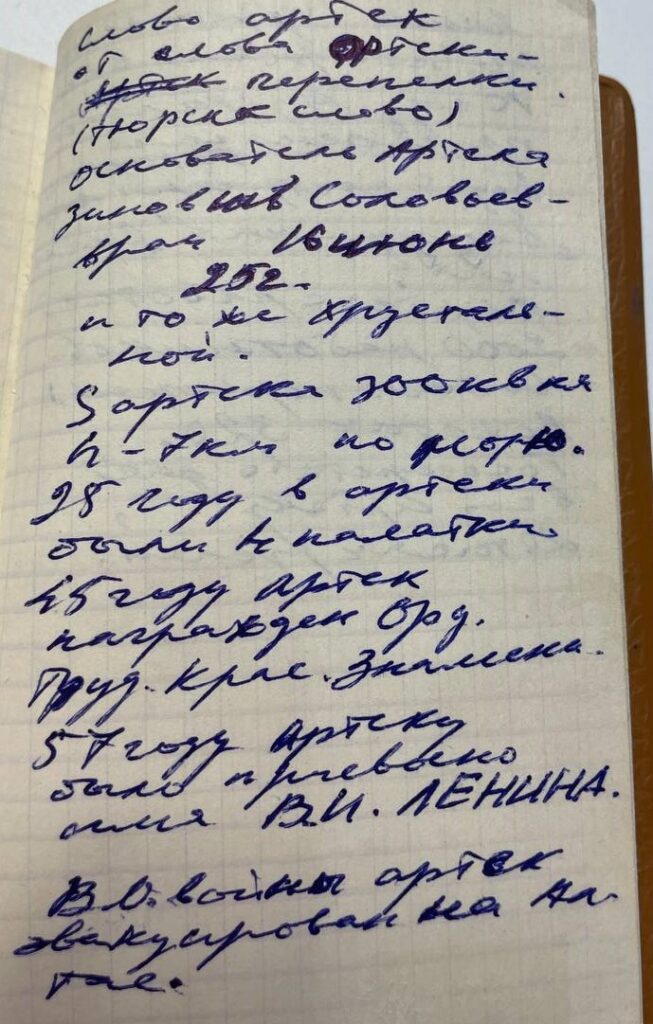 слово артек
от слова Ортеки-
перепелки.
(тюркск слово)
основатель Артека
зиновий Соловьев-
врач 16 июня
25г.
п то же хрусталь-
ной.
S артека 300 кв км
h - 7 км по морю.
25 году в артеки
были 4 палатки
45 году Артек
награжден Орд.
Труд. Крас. Знамени.
57 году Артеку
было присвоено
имя В.И. ЛЕНИНА.
В О. войны артек
эвакуирован на Ал-
тае.